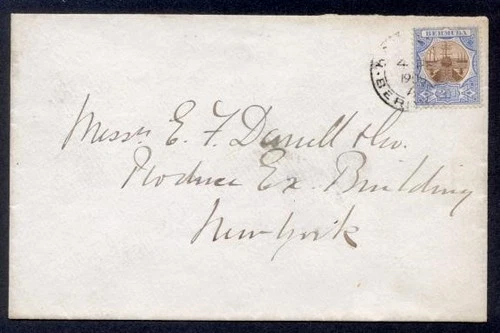 BERMUDA
2½d
4
19
BER
Messrs E. F. Darrell & Co.
Produce Ex. Building
New York